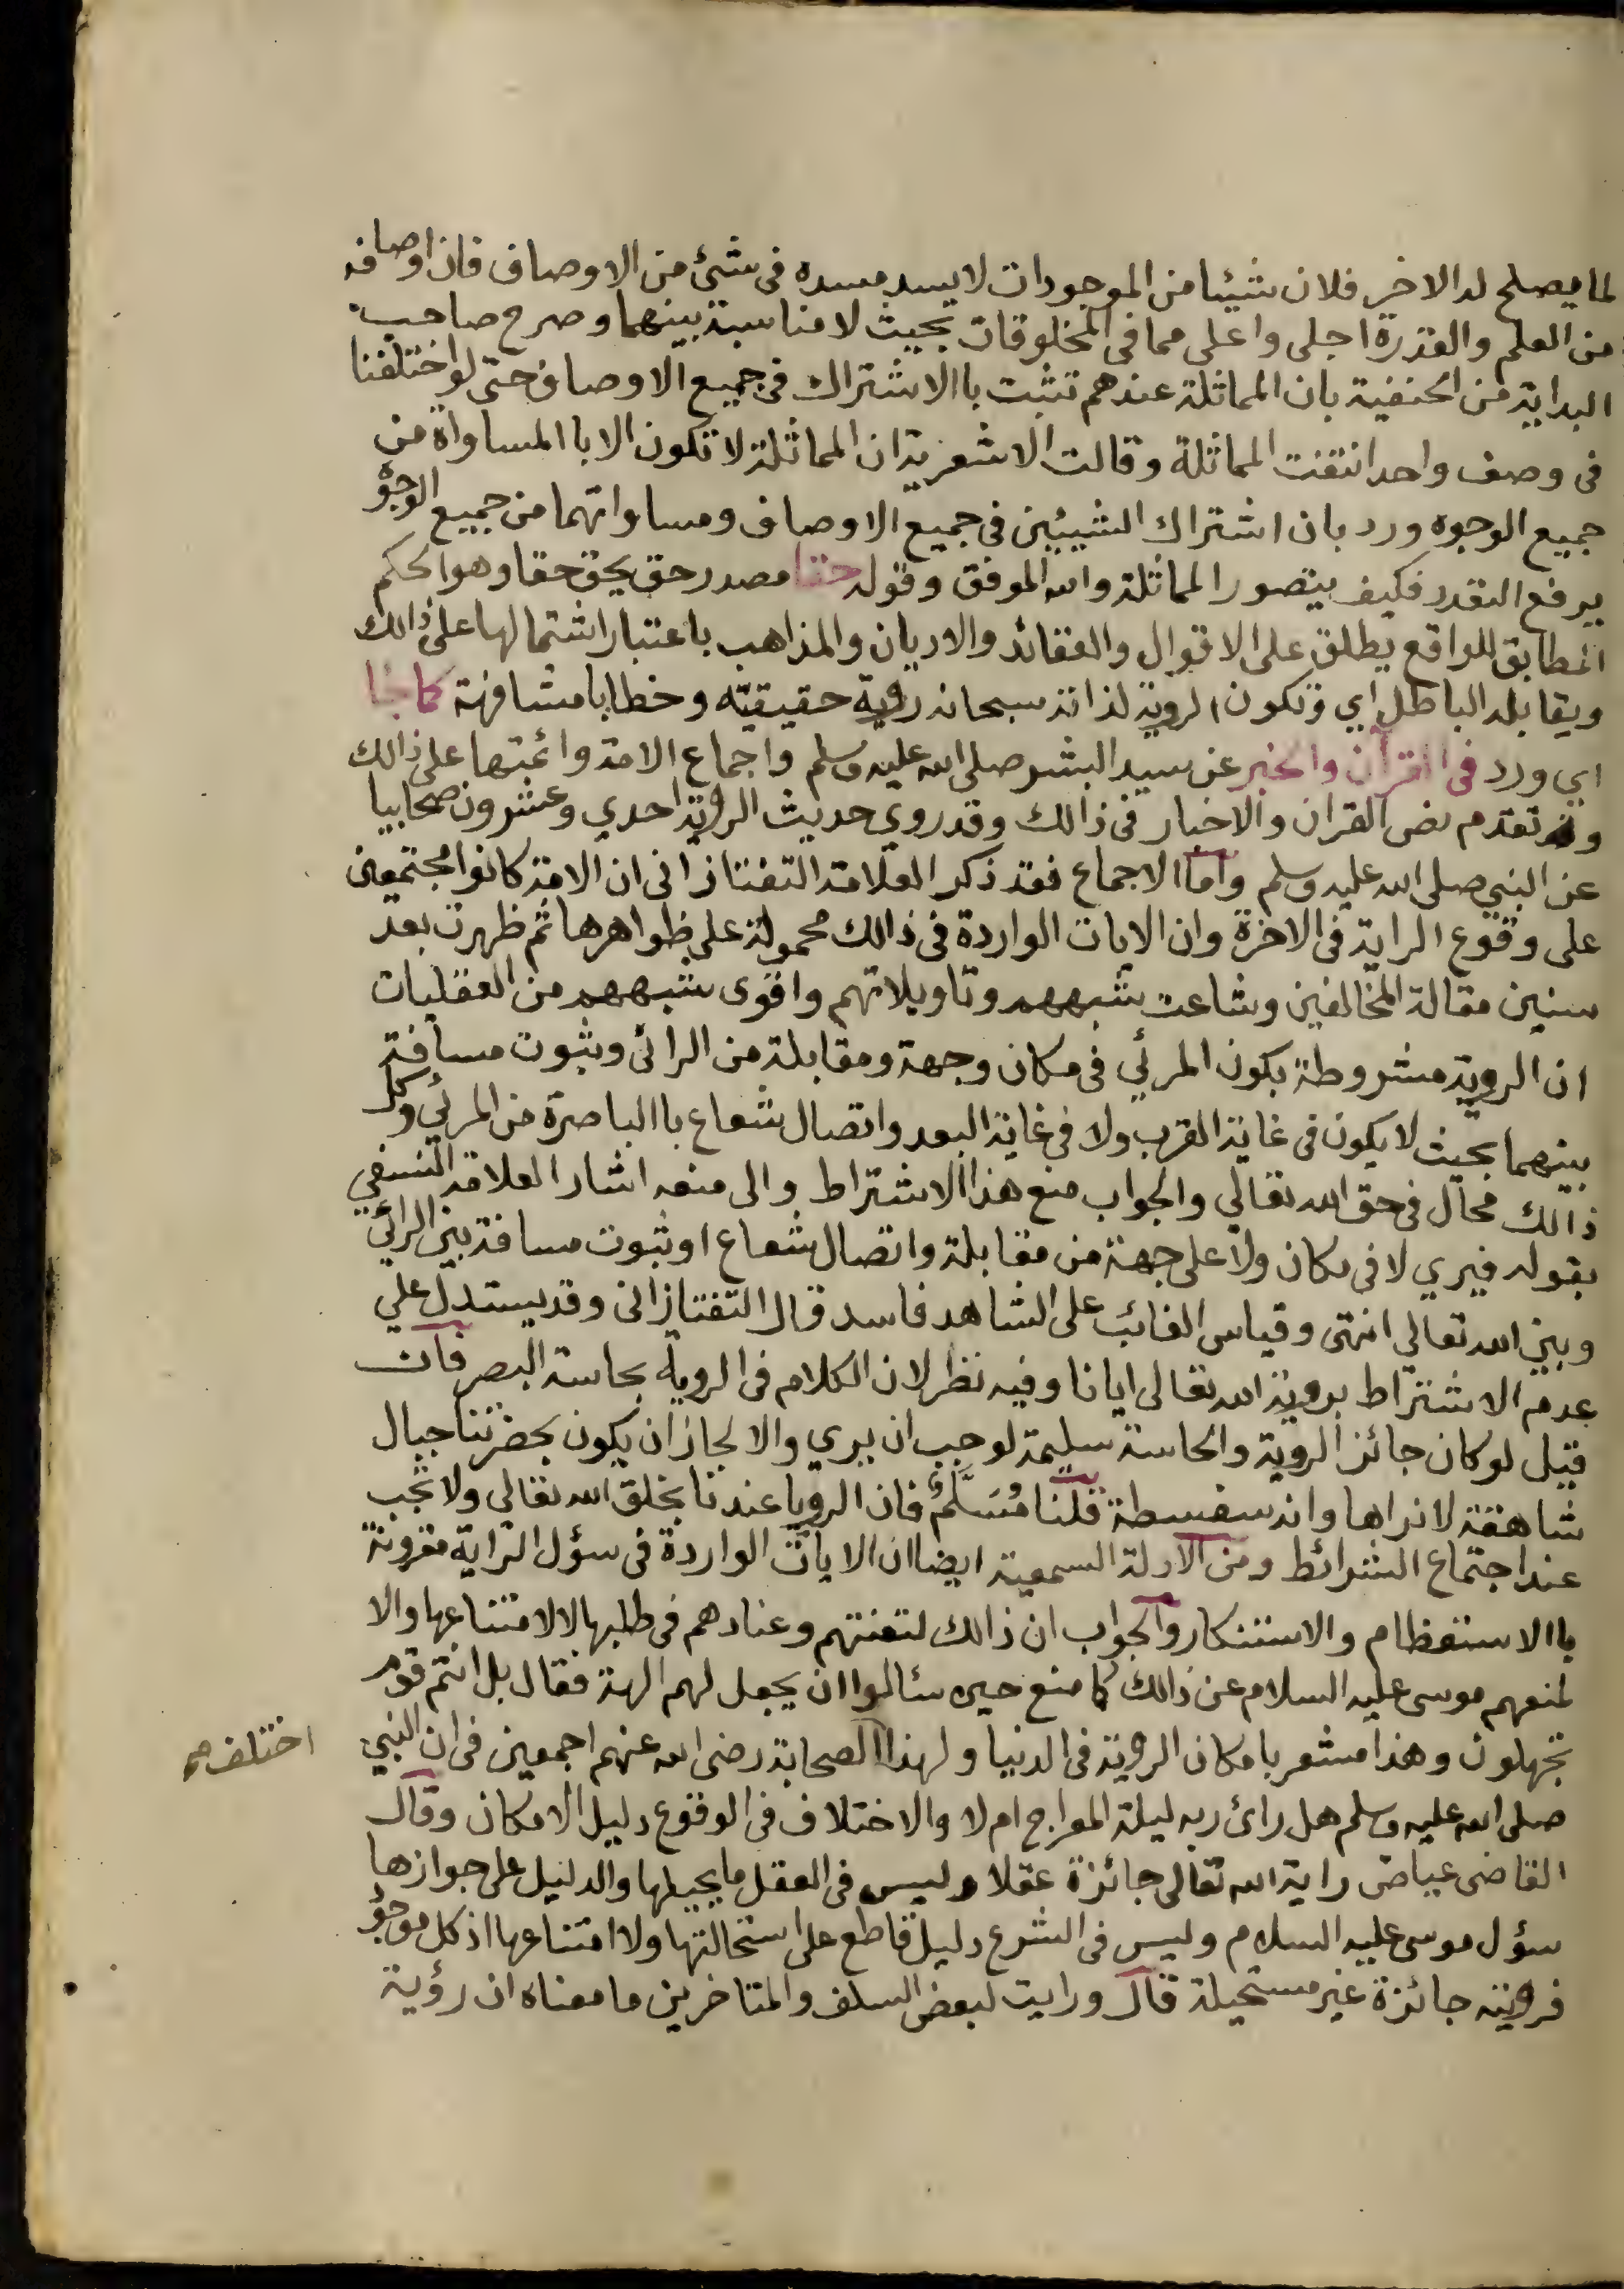 لما يصلح له الاخر فلان شيئا من الموجودات لا يسد مسده في شئ من الاوصاف فان اوصافه
من العلم والقدرة اجلى واعلى مما في المخلوقات بحيث لا مناسبة بينهما وصرح صاحب
البداية من الحنفية بان المماثلة عندهم تثبت باالاشتراك في جميع الاوصاف حتى لو اختلفنا
في وصف واحد انتفت المماثلة وقالت الاشعرية ان المماثلة لا تكون الا باالمساواة من
جميع الوجوه ورد بان اشتراك الشيئين في جميع الاوصاف ومساواتهما من جميع الوجوه
يرفع التعدد فكيف يتصور المماثلة والله الموفق وقوله حقا مصدر حق يحق حقا وهو الحكم
المطابق للواقع يطلق على الاقوال والعقائد والاديان والمذاهب باعتبار اشتمالها على ذالك
ويقابله الباطل اي وتكون الروية لذاته سبحانه روية حقيقيّه وخطابا مشافهة كما جا
اي ورد في القرآن والخبر عن سيد البشر صلى الله عليه وسلم واجماع الامة وائمتها على ذالك
وقد تقدم نص القران والاخبار في ذالك وقد روي حديث الروية احدي وعشرون صحابيا
عن النبي صلى الله عليه وسلم واما الاجماع فقد ذكر العلامة التفتازاني ان الامة كانوا مجتمعين
على وقوع الراية في الاخرة وان الايات الواردة في ذالك محمولة على ظواهرها ثم ظهرت بعد
سنين مقالة المخالفين وشاعت شبههم وتاويلاتهم واقوى شبههم من العقليات
ان الروية مشروطة بكون المرئي في مكان وجهة ومقابلة من الرائى وثبوت مسافة
بينهما بحيث لا يكون في غاية القرب ولا في غاية البعد واتصال شعاع باالباصرة من المرئي وكل
ذالك محال في حق الله تعالي والجواب منع هذا الاشتراط والى منعه اشار العلامة النسفي
بقوله فيري لا في مكان ولا على جهة من مقابلة واتصال شعاع او ثبوت مسافة بين الرائي
وبين الله تعالى انتهى وقياس الغائب على الشاهد فاسد قال التفتازانى وقد يستدل علي
عدم الاشتراط بروية الله تعالى ايانا وفيه نظر لان الكلام في الروية بحاسة البصر فان
قيل لو كان جائز الروية والحاسة سليمة لوجب ان يري والا لجاز ان يكون بحضرتنا جبال
شاهقة لا نراها وانه سفسطة قلنا مُسَلَّمٌ فان الرويا عندنا بخلق الله تعالي ولا تجب
عند اجتماع الشرائط ومن الادلة السمعية ايضا ان الايات الواردة في سؤل الراية مقرونة
باالاستعظام والاستنكار والجواب ان ذالك لتعنتهم وعنادهم في طلبها لا لامتناعها والا
لمنعهم موسى عليه السلام عن ذالك كما منع حين سئالوا ان يجعل لهم الهة فقال بل انتم قوم
تجهلون وهذا مشعر بامكان الروية في الدنيا ولهذا الصحابة رضى الله عنهم اجمعين في ان النبي
اختلف صح
صلى الله عليه وسلم هل رائ ربه ليلة المعراج ام لا والاختلاف في الوقوع دليل الامكان وقال
القاضي عياض راية الله تعالى جائزة عقلا وليس في العقل ما يحيلها والدليل على جوازها
سؤل موسى عليه السلام وليس في الشرع دليل قاطع على استحالتها ولا امتناعها اذ كل موجود
فرويته جائزة غير مستحيلة قال ورايت لبعض السلف والمتاخرين ما معناه ان رؤية